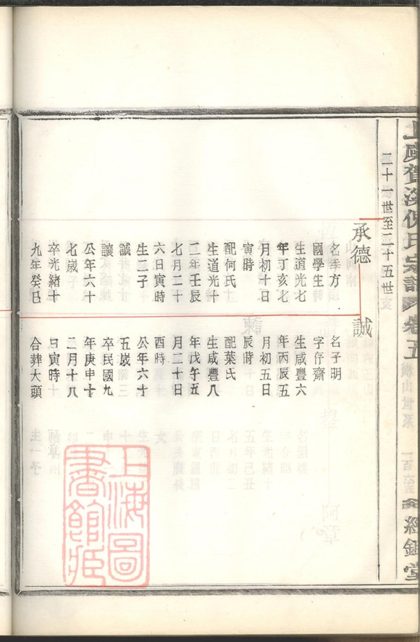 上虞賀溪倪氏宗譜
卷五
經鋤堂
二十一世至二十五世
承德
名孝方
國學生
生道光七
年丁亥七
月初十日
寅時
配何氏
生道光十
二年壬辰
七月二十
六日寅時
生二子
誠
讓
公年六十
七歲
卒光緒十
九年癸巳
誠
名子明
字存齋
生咸豐六
年丙辰五
月初五日
辰時
配葉氏
生咸豐八
年戊午五
月二十日
酉時
公年六十
五歲
卒民國九
年庚申十
二月十八
日寅時
合葬大頭
上海圖
書館藏